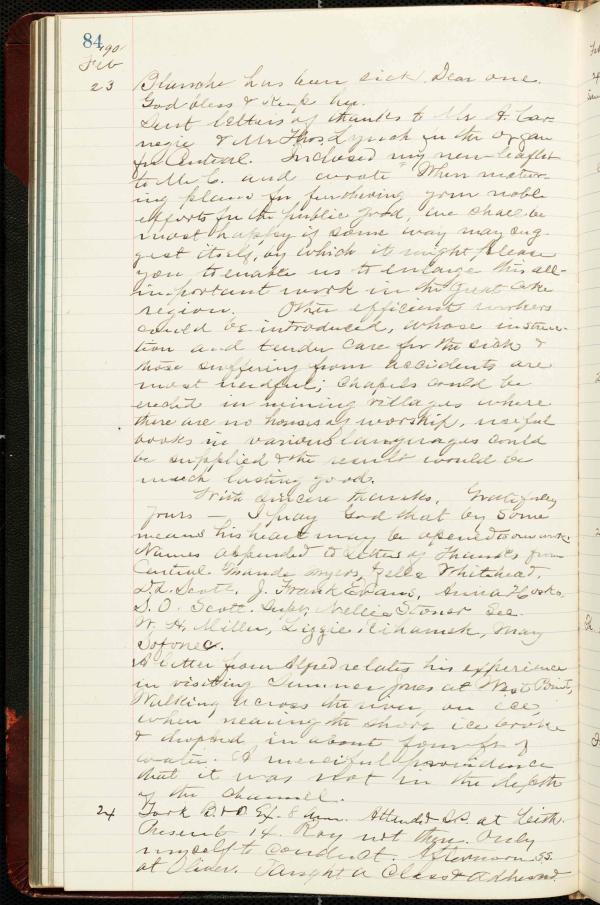 84
'90
Feb
23 Blanche has been sick. Dear one.
God bless & keep her.
Sent letters of thanks to Mr A. Car-
negie & Mr Thos Lynch for the organ
for Central. Inclosed my new leaflet
to Mr C. and wrote "When matur-
ing plans for furthering your noble
efforts for the public good, we shall be
most happy if some way may sug-
gest itself, by which it might please
you to enable us to enlarge this all-
important work in the Great Coke
region. Other efficient workers
could be introduced, whose instruc-
tion and tender care for the sick &
those suffering from accidents are
most needful; chapels could be
erected in mining villages where
there are no houses of worship, useful
books in various languages could
be supplied & the result would be
much lasting good.
With sincere thanks, Gratefully
yours — I pray God that by some
means his heart may be opened to our work.
Names appended to letter of thanks from
Central. Myers, Zella Whitehead,
D. L. Scott. J. Frank Evans, Anna
S. O. Scott. Supt, Nellie Stoner Sec.
W. H. Miller, Lizzie May
A letter from Alfred relates his experience
in visiting Sumner Jones at West Point,
Walking across the river on ice
when nearing the shore ice broke
& dropped in about four ft of
water. A merciful providence
that it was not in the depth
of the channel.
24 Took B & O Ex. 8 a.m. Attended S.S. at Leith.
Present 14. Roy not there. Only
myself to conduct. Afternoon S.S.
at Oliver. Taught a Class & addressed.